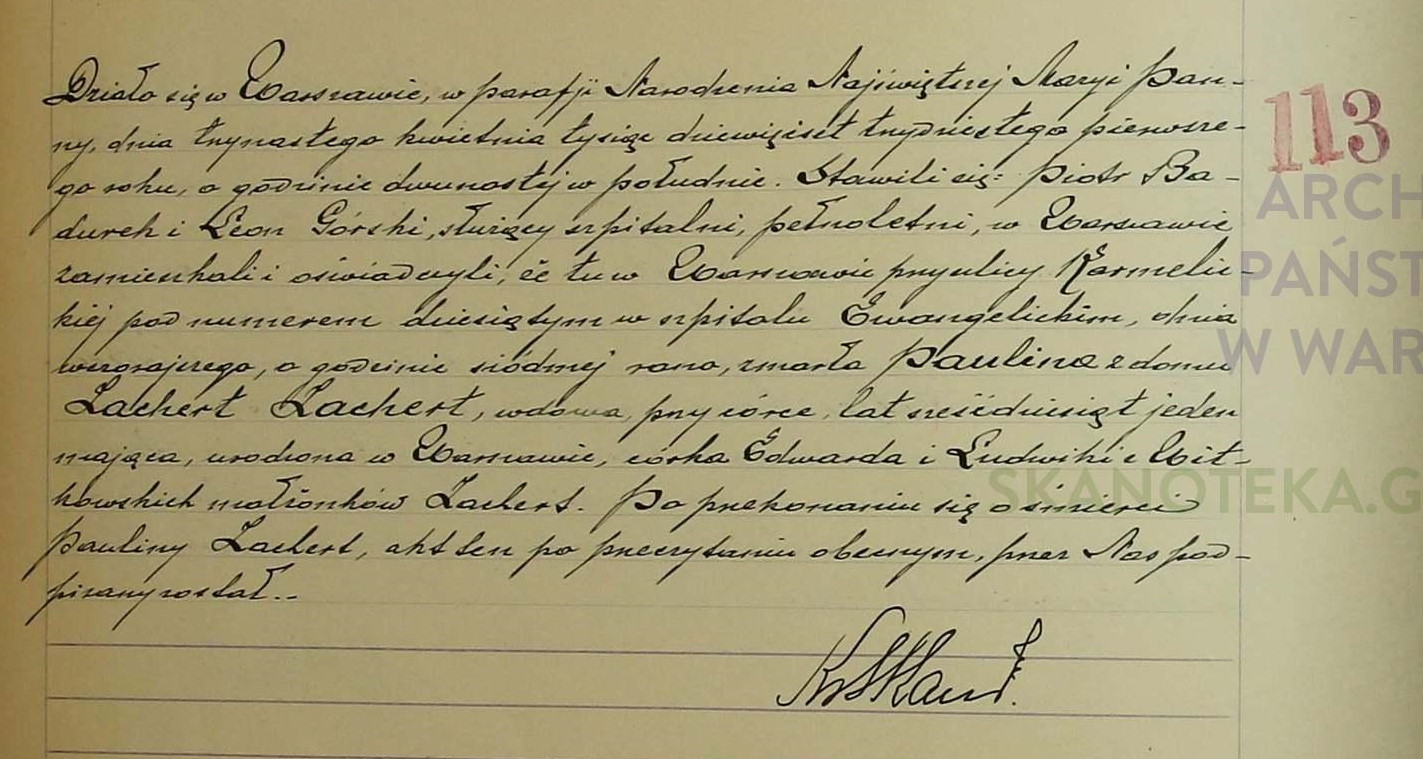 Działo się w Warszawie, w parafji Narodzenia Najświętszej Maryi Pan-
ny, dnia trzynastego kwietnia tysiąc dziewięćset trzydziestego pierwsze-
go roku, o godzinie dwunastej w południe. Stawili się: Piotr Ba-
durek i Leon Górski, służący szpitalni, pełnoletni, w Warszawie
zamieszkali i oświadczyli, że tu w Warszawie przy ulicy Karmelic-
kiej pod numerem dziesiątym w szpitalu Ewangelickim, dnia
wczorajszego, o godzinie siódmej rano, zmarła Paulina z domu
Lachert Lachert, wdowa, przy córce, lat sześćdziesiąt jeden
mająca, urodzona w Warszawie, córka Edwarda i Ludwiki z Wit-
kowskich małżonków Lachert. Po przekonaniu się o śmierci
Pauliny Lachert, akt ten po przeczytaniu obecnym, przez Nas pod-
pisany został.-
113
ARCH
PAŃST
W WAR
SKANOTEKA.G